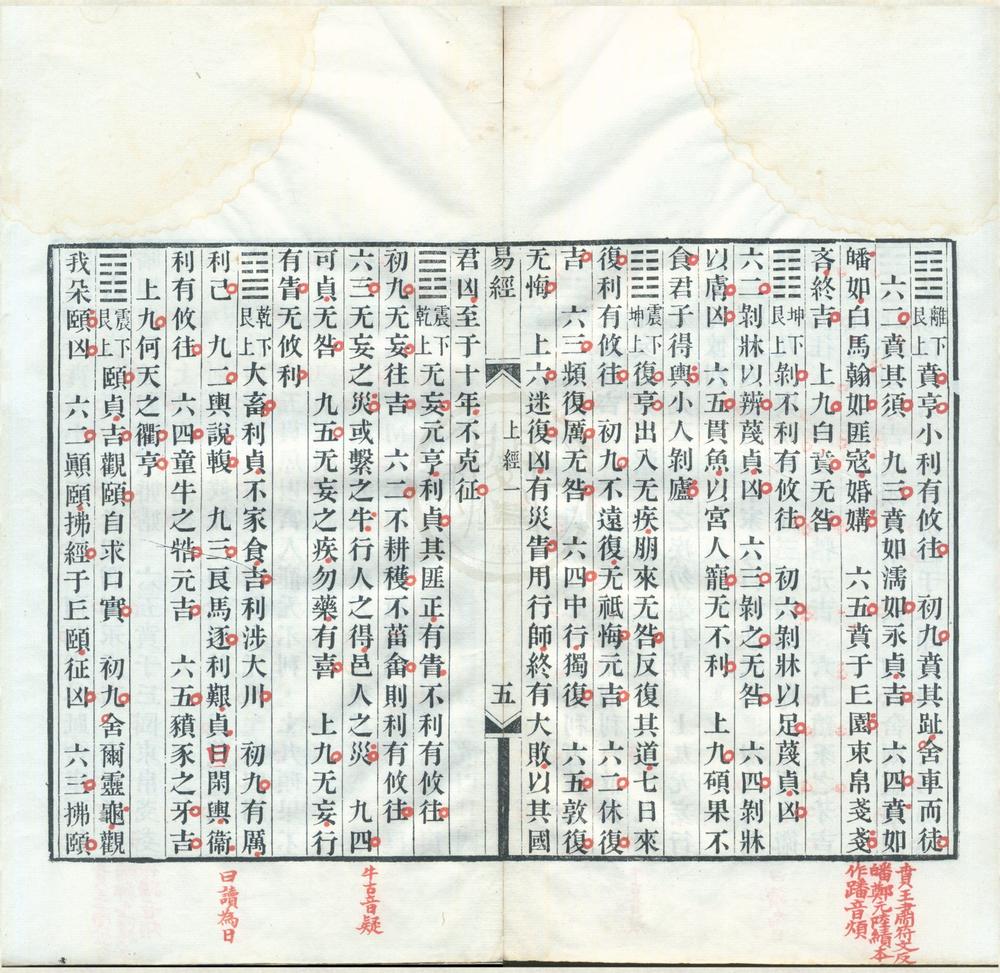 ䷕離下艮上賁亨小利有攸往　初九賁其趾舍車而徒
六二賁其須　九三賁如濡如永貞吉　六四賁如
皤如白馬翰如匪寇婚媾　六五賁于丘園束帛戔戔
吝終吉上九白賁无咎
䷖坤下艮上剝不利有攸往　初六剝牀以足蔑貞凶
六二剝牀以辨蔑貞凶　六三剝之无咎　六四剝牀
以膚凶　六五貫魚以宮人寵无不利　上九碩果不
食君子得輿小人剝廬
䷗震下坤上復亨出入无疾朋來无咎反復其道七日來
復利有攸往　初九不遠復无祗悔元吉　六二休復
吉　六三頻復厲无咎　六四中行獨復　六五敦復
无悔　上六迷復凶有災眚用行師終有大敗以其國
易經　上經　五
君凶至于十年不克征
䷘震下乾上无妄元亨利貞其匪正有眚不利有攸往
初九无妄往吉　六二不耕穫不菑畬則利有攸往
六三无妄之災或繫之牛行人之得邑人之災　九四
可貞无咎　九五无妄之疾勿藥有喜　上九无妄行
有眚无攸利
䷙乾下艮上大畜利貞不家食吉利涉大川　初九有厲
利已　九二輿說輹　九三良馬逐利艱貞曰閑輿衞
利有攸往　六四童牛之牿元吉　六五豶豕之牙吉
上九何天之衢亨
䷚震下艮上頤貞吉觀頤自求口實　初九舍爾靈龜觀
我朵頤凶　六二顚頤拂經于丘頤征凶　六三拂頤
賁王肅符文反
皤鄭元陸績本
作蹯音煩
牛古音疑
曰讀為日